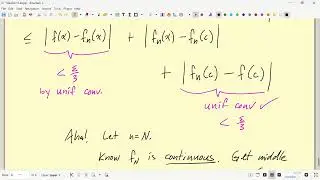 ≤ |f(x)-fₙ(x)| + |fₙ(x)-fₙ(c)|
< ε/3
by unif conv.
+ |fₙ(c)-f(c)|
unif conv ✓
< ε/3
Aha! Let n=N.
Know f_N is continuous. Get middle